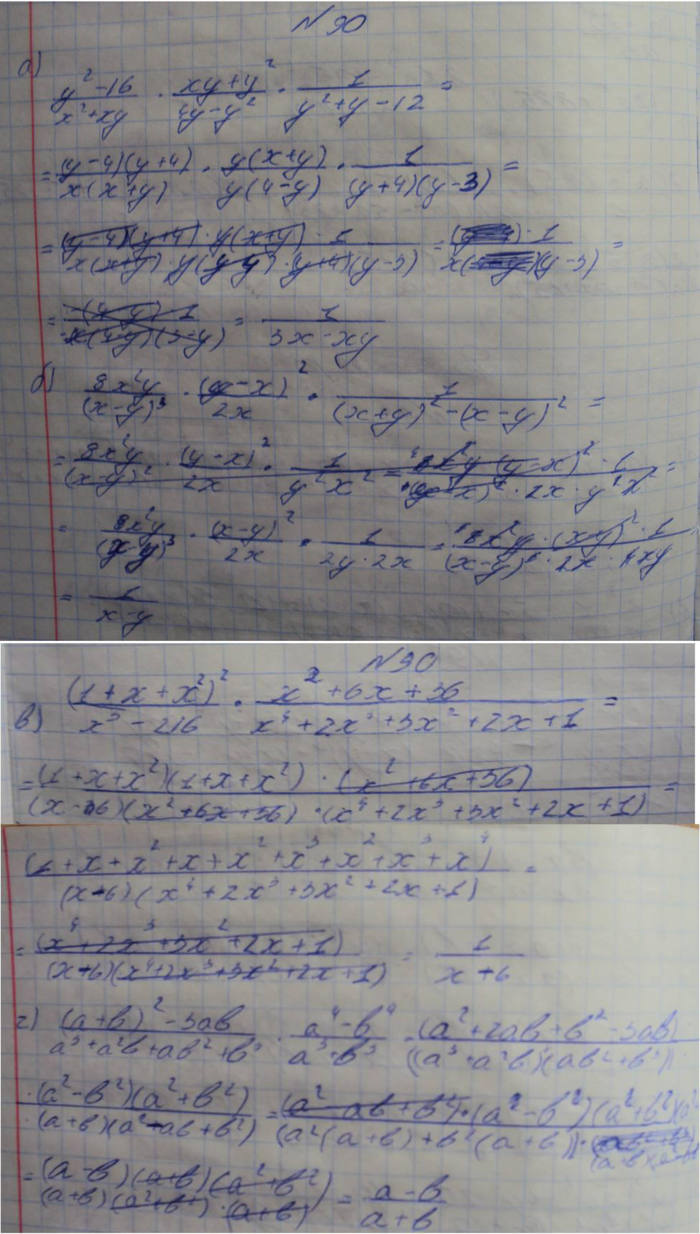 N90
а) (y²-16)/(x²+xy) · (xy+y²)/(4y-y²) · 1/(y²+y-12) =
= ((y-4)(y+4))/(x(x+y)) · (y(x+y))/(y(4-y)) · 1/((y+4)(y-3)) =
= ((y-4)(y+4)·y(x+y)·1)/(x(x+y)·y(4-y)·(y+4)(y-3)) = 1/(x(y-3)) =
= = 1/(3x-xy)
б) (8x²y)/(x-y)³ · (y-x)²/(2x) · 1/((x+y)²-(x-y)²) =
= (8x²y)/(x-y)² · (y-x)²/(2x) · 1/(y²x²) = =
= (8x²y)/(x-y)³ · (x-y)²/(2x) · 1/(2y·2x) = (8x²y·(x-y)²·1)/((x-y)³·2x·4xy) =
= 1/(x-y)
N90
в) (1+x+x²)²/(x³-216) · (x²+6x+36)/(x⁴+2x³+3x²+2x+1) =
= ((1+x+x²)(1+x+x²)·(x²+6x+36))/((x-6)(x²+6x+36)·(x⁴+2x³+3x²+2x+1)) =
(1+x+x²+x+x²+x³+x²+x³+x⁴)/((x-6)(x⁴+2x³+3x²+2x+1)) =
= (x⁴+2x³+3x²+2x+1)/((x-6)(x⁴+2x³+3x²+2x+1)) = 1/(x-6)
г) ((a+b)²-3ab)/(a³+a²b+ab²+b³) · (a⁴-b⁴)/(a³+b³) = (a²+2ab+b²-3ab)/((a³+a²b)(ab²+b³)) ·
· ((a²-b²)(a²+b²))/((a+b)(a²-ab+b²)) = ((a²-ab+b²)·(a²-b²)(a²+b²))/((a²(a+b)+b²(a+b))·
= ((a-b)(a+b)(a²+b²))/((a+b)(a²+b²)·(a+b)) = (a-b)/(a+b)